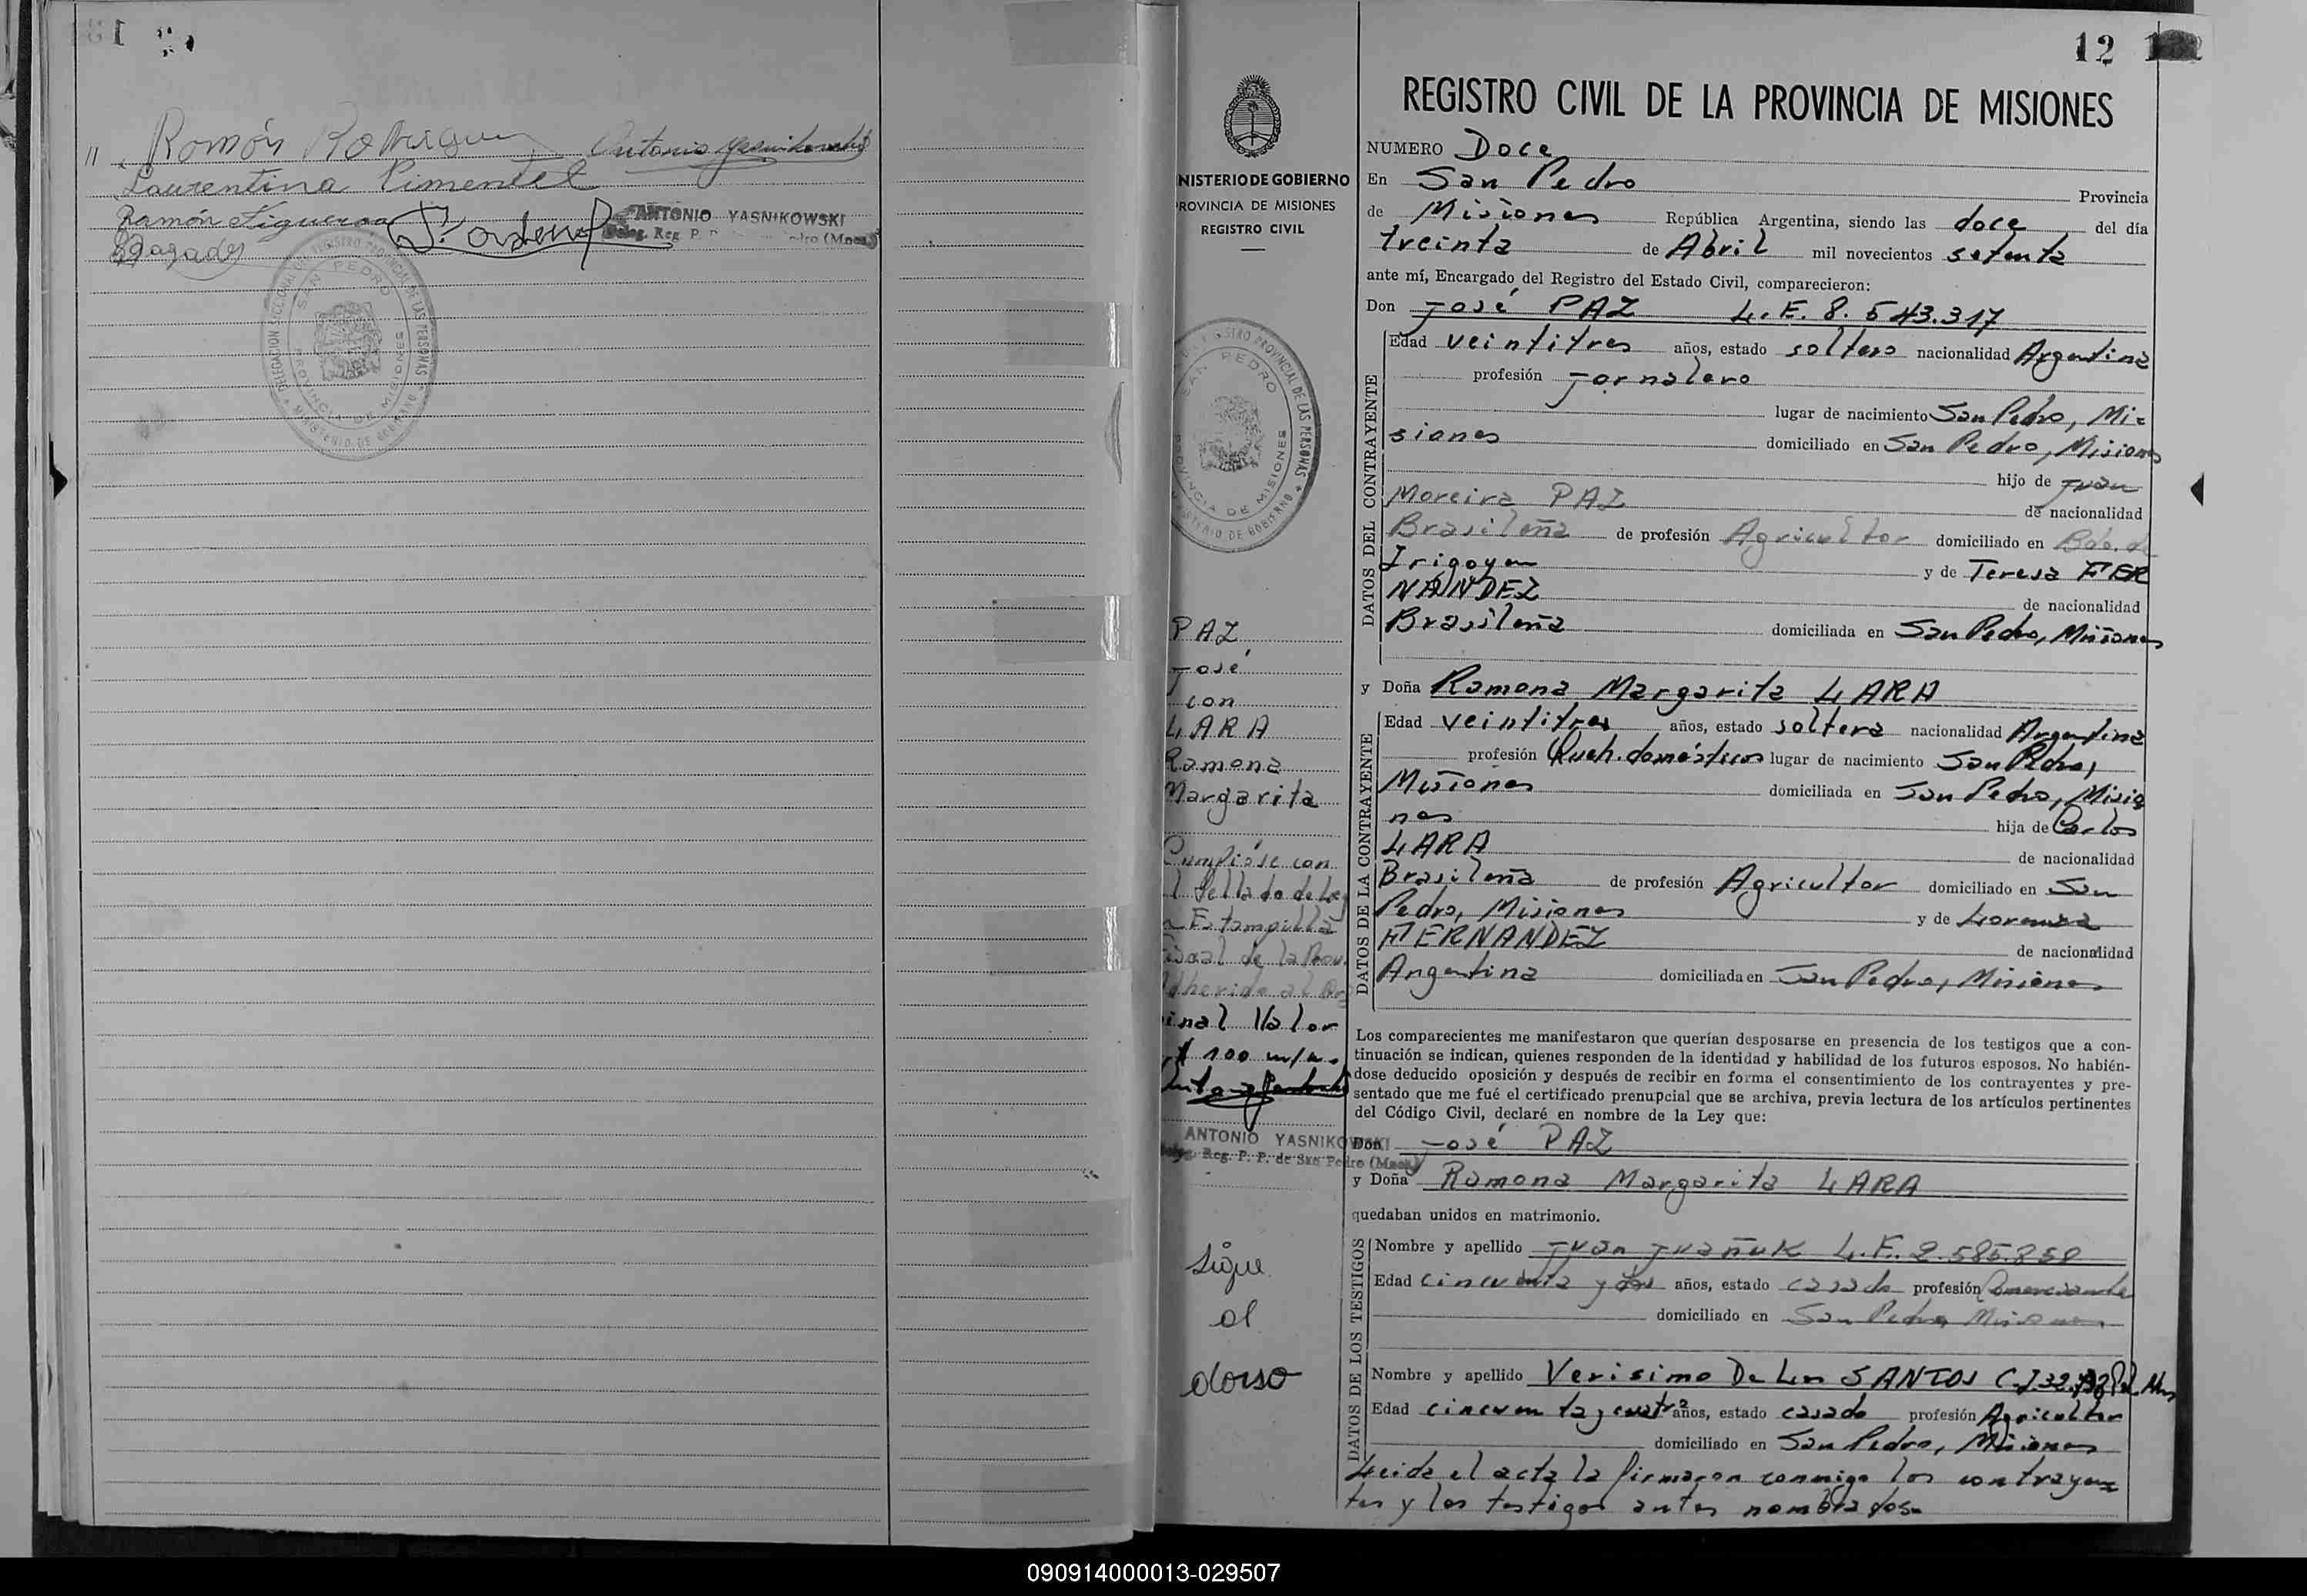 11 Ramón Rodriguez Antonio Yasnikowski
Laurentina Pimentel
Ramón Figueroa
ANTONIO YASNIKOWSKI
Deleg. Reg. P. P. de San Pedro (Mnes.)
DELEGACION SECCIONAL DEL REGISTRO PROVINCIAL DE LAS PERSONAS
SAN PEDRO
PROVINCIA DE MISIONES
MINISTERIO DE GOBIERNO
12
MINISTERIO DE GOBIERNO
PROVINCIA DE MISIONES
REGISTRO CIVIL
SAN PEDRO
PROVINCIA DE MISIONES
PAZ
José
con
LARA
Ramona
Margarita
Cumplióse con
el Sellado de Ley
en Estampilla
Fiscal de la Prov.
Adherida al Orig
inal Valor
$ 100 m/n.
ANTONIO YASNIKOWSKI
Deleg. Reg. P. P. de San Pedro (Mnes.)
Sigue
al
dorso
REGISTRO CIVIL DE LA PROVINCIA DE MISIONES
NUMERO Doce
En San Pedro Provincia
de Misiones República Argentina, siendo las doce del día
treinta de Abril mil novecientos setenta
ante mí, Encargado del Registro del Estado Civil, comparecieron:
Don José PAZ L. E. 8.543.317
DATOS DEL CONTRAYENTE
Edad veintitres años, estado soltero nacionalidad Argentina
profesión Jornalero
lugar de nacimiento San Pedro, Mi-
siones domiciliado en San Pedro, Misiones
hijo de Juan
Moreira PAZ de nacionalidad
Brasileña de profesión Agricultor domiciliado en Bdo. de
Irigoyen y de Teresa FER
NANDEZ de nacionalidad
Brasileña domiciliada en San Pedro, Misiones
y Doña Ramona Margarita LARA
DATOS DE LA CONTRAYENTE
Edad veintitres años, estado soltera nacionalidad Argentina
profesión Queh. domésticos lugar de nacimiento San Pedro,
Misiones domiciliada en San Pedro, Misio
nes hija de Carlos
LARA de nacionalidad
Brasileña de profesión Agricultor domiciliado en San
Pedro, Misiones y de Lorenza
FERNANDEZ de nacionalidad
Argentina domiciliada en San Pedro, Misiones
Los comparecientes me manifestaron que querían desposarse en presencia de los testigos que a con-
tinuación se indican, quienes responden de la identidad y habilidad de los futuros esposos. No habién-
dose deducido oposición y después de recibir en forma el consentimiento de los contrayentes y pre-
sentado que me fué el certificado prenupcial que se archiva, previa lectura de los artículos pertinentes
del Código Civil, declaré en nombre de la Ley que:
Don José PAZ
y Doña Ramona Margarita LARA
quedaban unidos en matrimonio.
DATOS DE LOS TESTIGOS
Nombre y apellido Juan Juañuk L.E. 2.585.858
Edad cincuenta y dos años, estado casado profesión Comerciante
domiciliado en San Pedro Misiones
Nombre y apellido Verisimo De Los SANTOS C.I 32. Pol. Mnes
Edad cincuenta y cuatro años, estado casado profesión Agricultor
domiciliado en San Pedro, Misiones
Leida el acta la firmaron conmigo los contrayen
tes y los testigos antes nombrados.
090914000013-029507